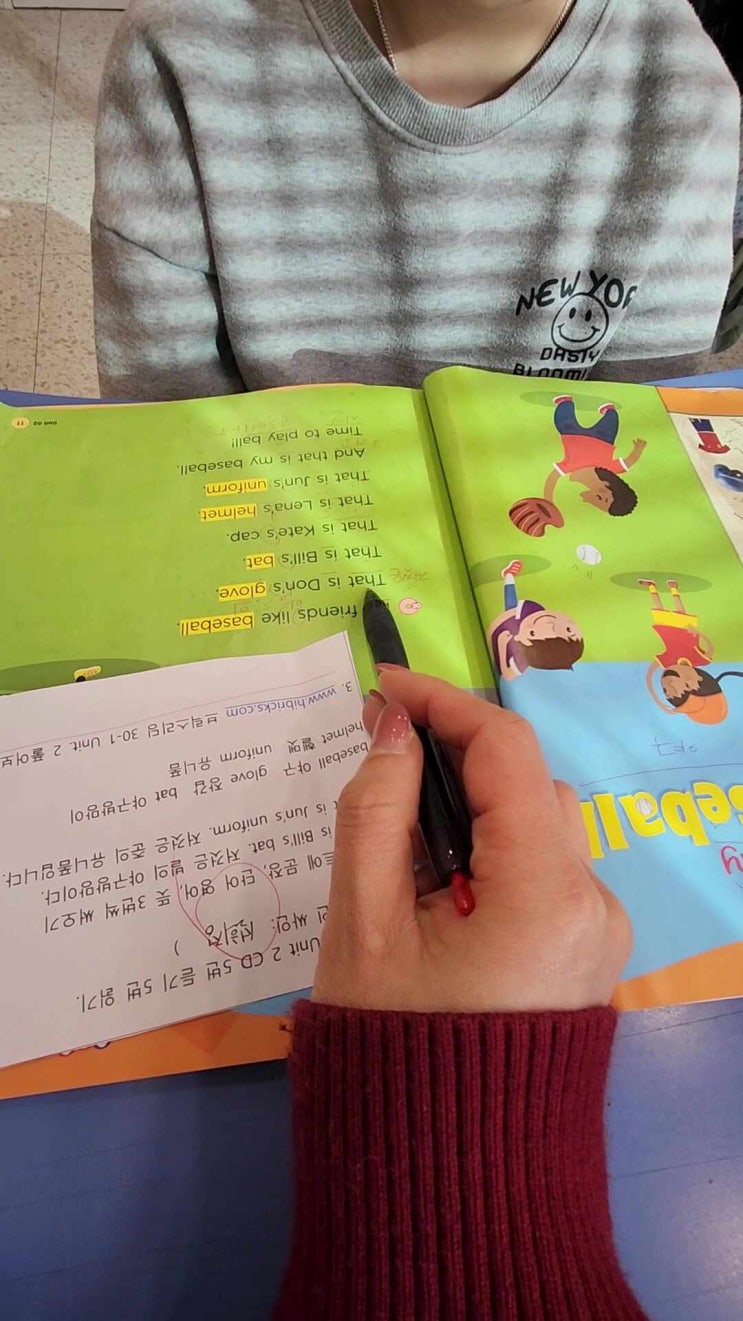 NEW YOR
DASTY
BLOOMI
friends like baseball.
That is Don's glove.
That is Bill's bat.
That is Kate's cap.
That is Lena's helmet.
That is Jun's uniform.
And that is my baseball.
Time to play ball!
Unit 02 11
야구
Unit 2 CD 5번 듣기 5번 읽기.
싸인: 선희정 )
문장, 단어 영어, 뜻 3번씩 써오기
is Bill's bat. 저것은 빌의 야구방망이다.
is Jun's uniform. 저것은 준의 유니폼입니다.
baseball 야구 glove 장갑 bat 야구방망이
helmet 헬멧 uniform 유니폼
3. www.hibricks.com
브릭스리딩 30-1 Unit 2 풀어보